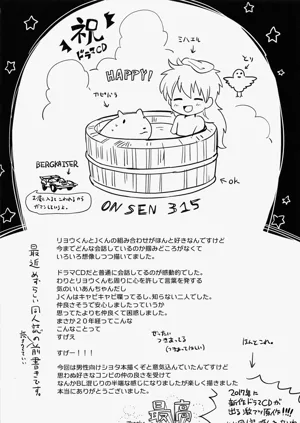 祝
ドラマCD
ミハエル
とり
HAPPY!
カピバラ
BERGKAISER
OK
ONSEN 315
リョウくんとJくんの組み合わせがほんと好きなんですけど
今までどんな会話しているのか掴みどころがなくて
いろいろ想像しつつ描いてました。
ドラマCDだと普通に会話しているのが感動的でした。
わりとリョウくんも周りに心を許して言葉を発する
気のいいあんちゃんだし
Jくんはキャピキャピ喋ってるし、知らない二人でした。
仲良さそうで安心しましたっていうか
思ってたよりも仲良くて困惑しました。
まさか20年経ってこんな
こんなことって
すげえ
すげー!!!
今回は男性向けショタ本描くぞと意気込んでいたんですけど
思わぬ好きなコンビの仲の良さを受けて
なんかBL混りの半端な感じになりましたが楽しく描きました
本当にありがとうございました。
最近めずらしい同人誌の前書きです。
最高
2017年に
新作ドラマCDが